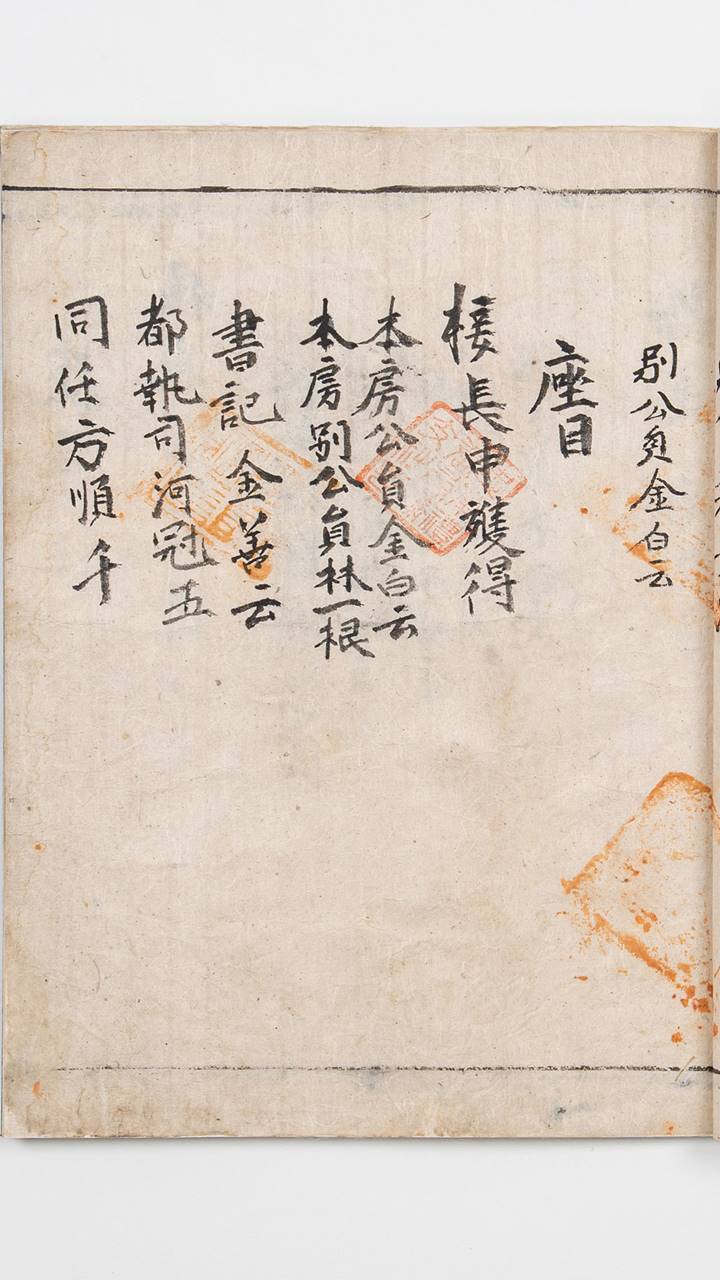 別公員金白云
座目
接長申頀得
本房公員金白云
本房別公員林一根
書記 金善云
都執司河冠五
同任方順千